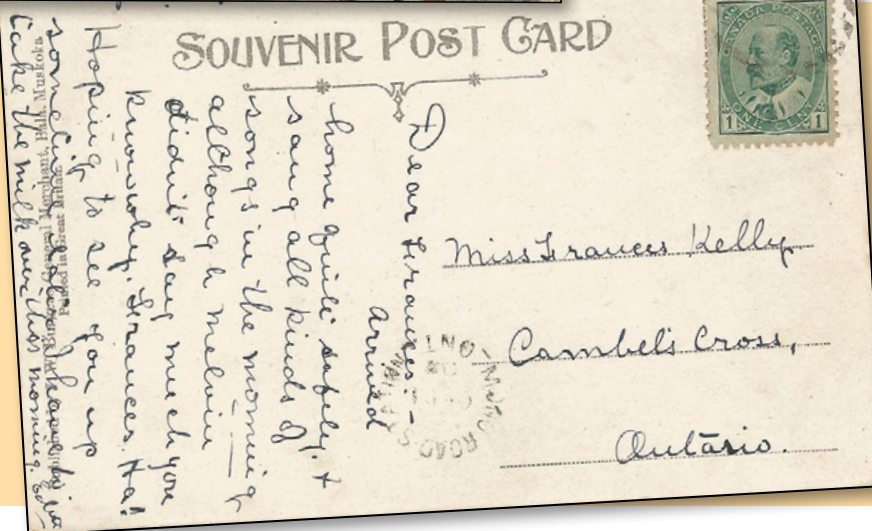 SOUVENIR POST CARD
CANADA POSTAGE
ONE CENT
1 1
Miss Frances Kelly
Cambel's Cross,
Ontario.
Dear Frances:-
Arrived
home quite safely. +
sang all kinds of
songs in the morning
although Melvin
didn't say much you
know why. Frances. Ha!
Hoping to see you up
some
take the milk over this morning. Ed
General Merchant, Bala, Muskoka.
Printed in Great Britain
ROAD
ONT